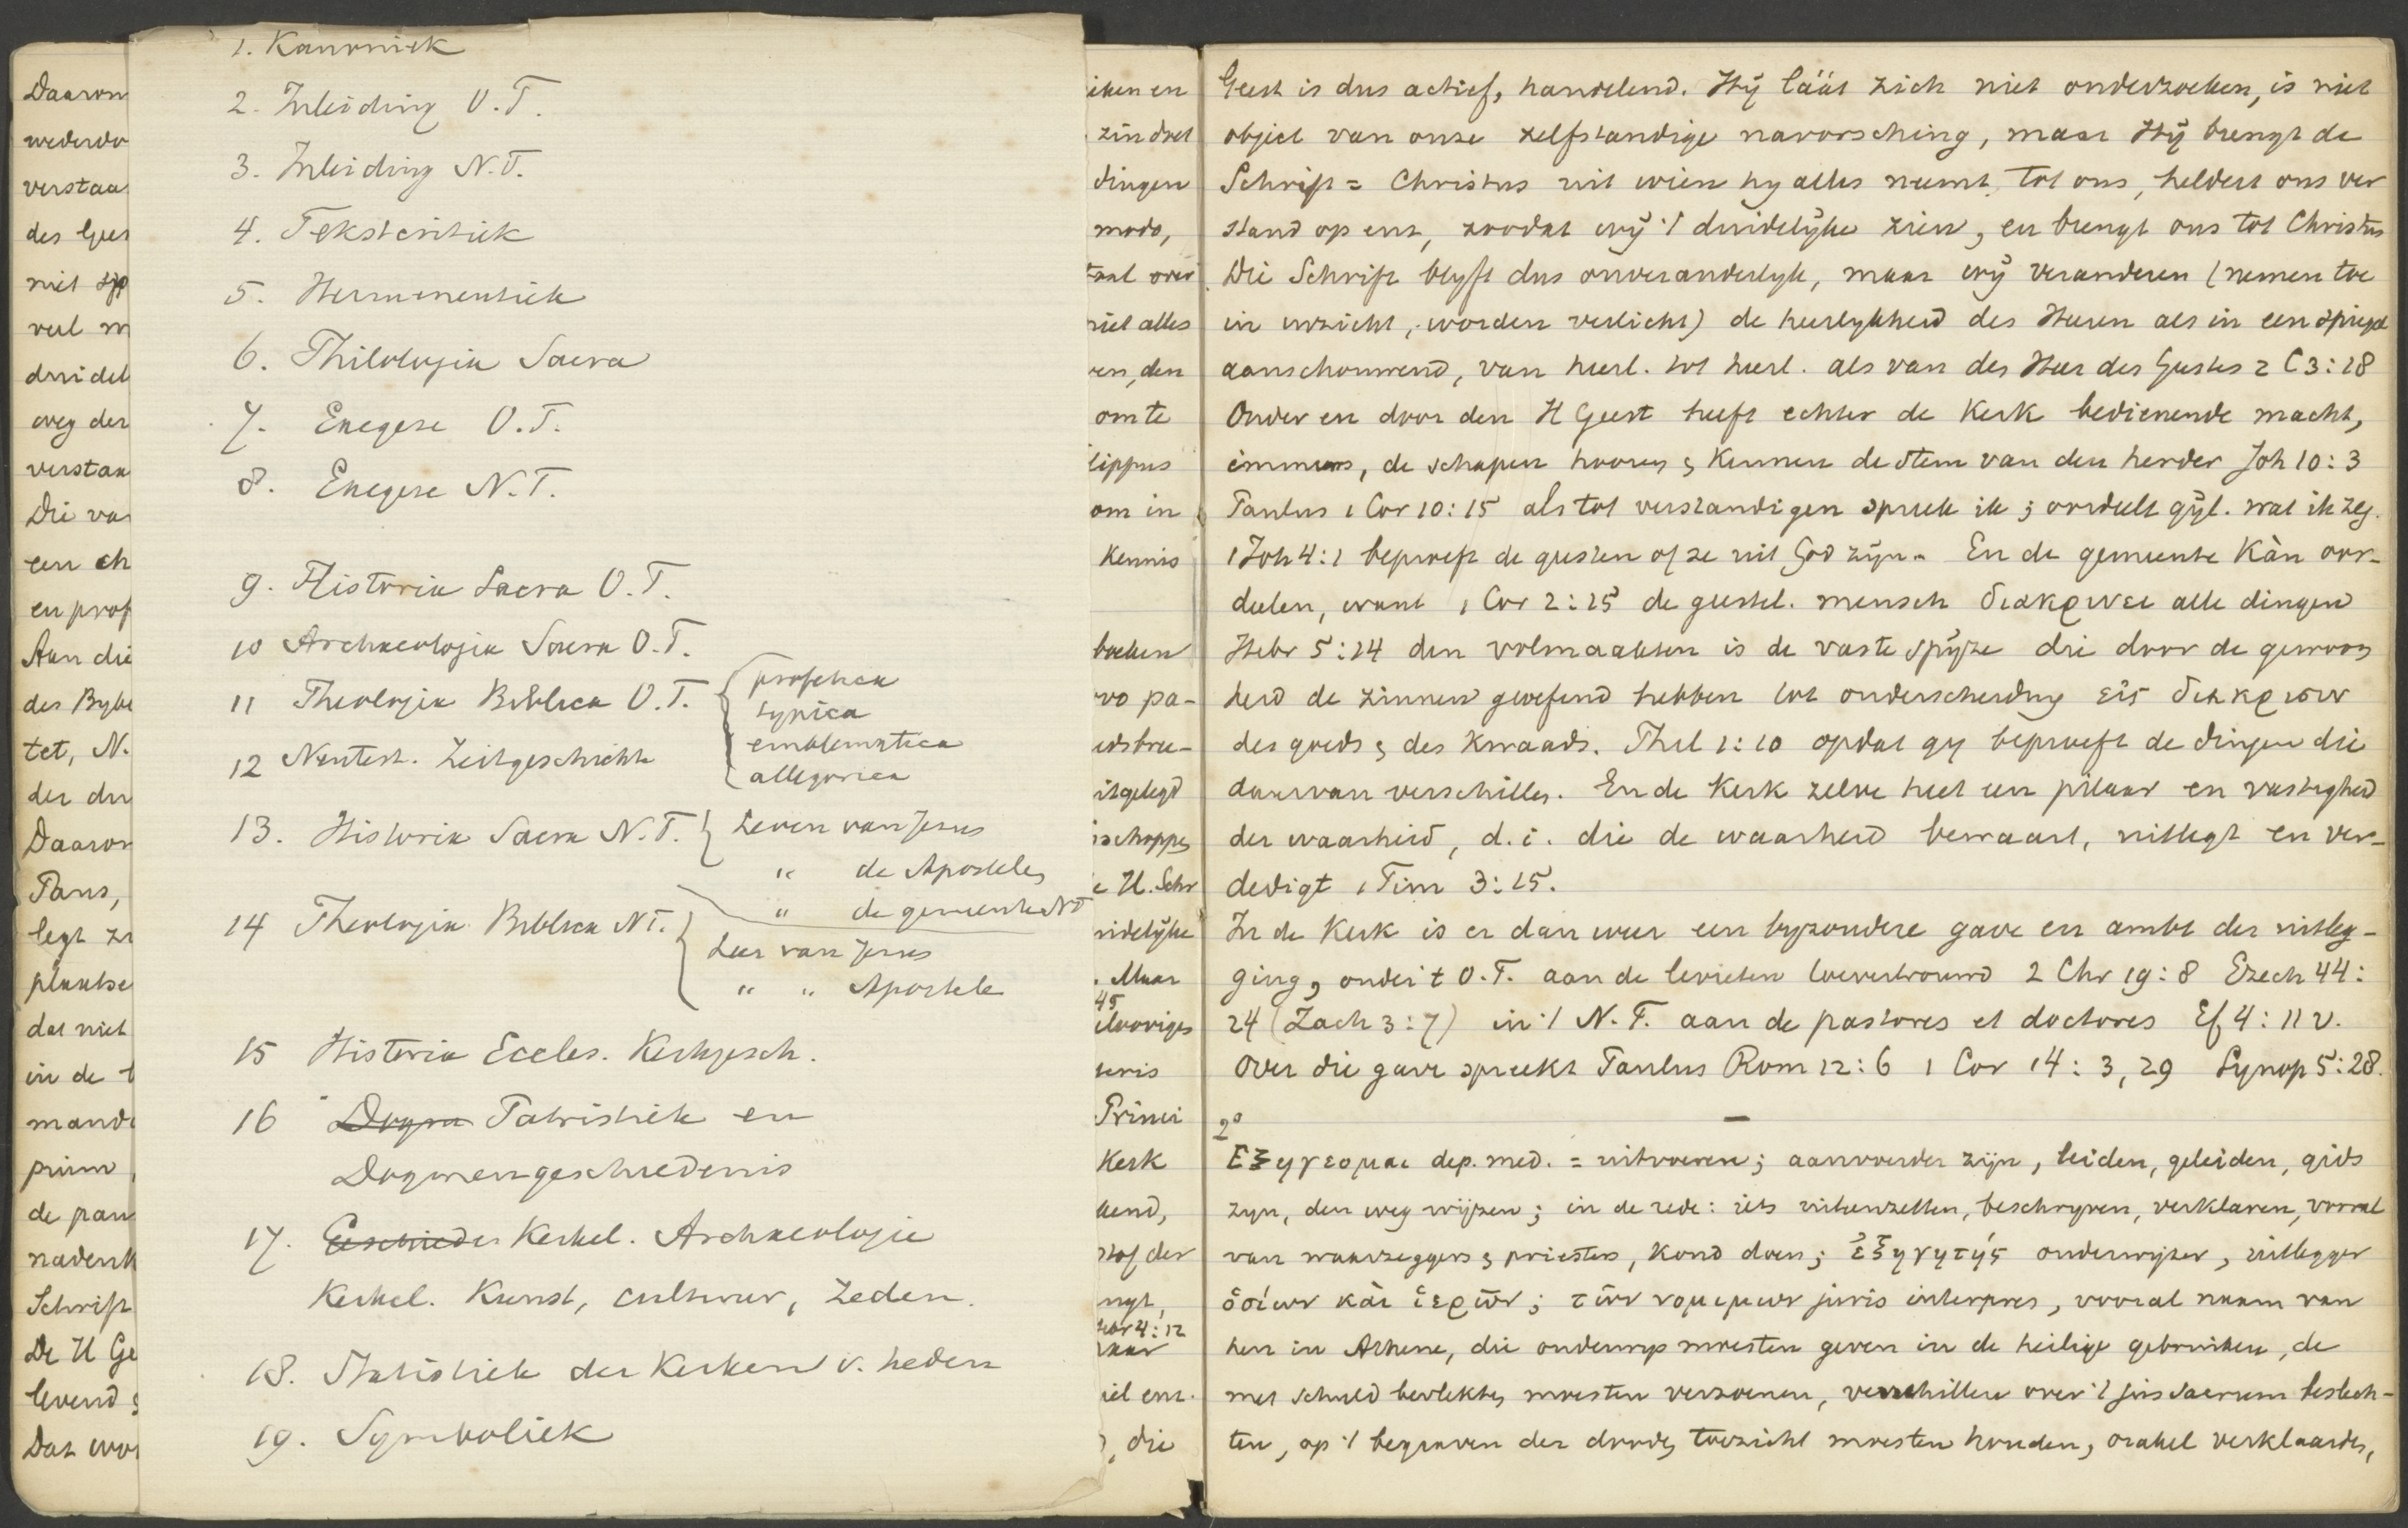 Daarom
wederdo
verstaa
des Gees
niet op
veel m
duidel
weg der
verstan
Die va
een ch
en prof
Aan die
des Bybe
tet, N.
der du
Daarom
Paus,
legt zi
plaatse
dat niet
in de t
mand
prim
de pau
nadenk
Schrift
De H Ge
levend &
Dat wor
1. Kanoniek
2. Inleiding O.T.
3. Inleiding N.T.
4. Tekstcritiek
5. Hermeneutiek
6. Philologia Sacra
7. Exegese O.T.
8. Exegese N.T.
9. Historia Sacra O.T.
10 Archaeologia Sacra O.T.
11 Theologia Biblica O.T. { prophetica
typica
emblematica
allegorica
12 Neutest. Zeitgeschichte
13. Historia Sacra N.T. } Leven van Jezus
" de Apostelen
" de gemeente NT
14 Theologia Biblica NT. { Leer van Jezus
" " Apostele
15 Historia Eccles. Kerkgesch.
16 Dogma Patristiek en
Dogmengeschiedenis
17. Geschieder Kerkel. Archaeologie
Kerkel. Kunst, cultuur, Zeden.
18. Statistiek der Kerken v. heden
19. Symboliek
iken en
zin doet
dingen
modo,
taal over
niet alles
ven, den
om te
lippus
om in
Kennis
boeken
vo pa-
idsbree-
itgelegd
isschoppen
e H. Schr
uidelyke
. Maar
45
ilvoriges
teris
Princi
Kerk
kend,
stof der
ngt,
Hebr 4:12
naar
iel enz.
), die
Geest is dus actief, handelend. Hij láát zich niet onderzoeken, is niet
object van onze zelfstandige navorsching, maar Hij brengt de
Schrift = Christus uit wien hy alles neemt tot ons, heldert ons ver
stand op enz, zoodat wij 't duidelijke zien, en brengt ons tot Christus
Die Schrift blyft dus onveranderlyk, maar wij veranderen (nemen toe
in inzicht, worden verlicht) de heerlykheid des Heeren als in een spiegel
aanschouwend, van heerl. tot heerl. als van des Heer des Geestes 2 C 3:18
Onder en door den H Geest heeft echter de Kerk bedienende macht,
immers, de schapen hooren & Kennen de stem van den herder Joh 10:3
Paulus 1 Cor 10:15 als tot verstandigen spreek ik; oordeelt gijl. wat ik zeg.
1 Joh 4:1 beproeft de geesten of ze uit God zijn. En de gemeente Kàn oor-
deelen, want 1 Cor 2:15 de geestel. mensch διακρινει alle dingen
Hebr 5:14 den volmaakten is de vaste spijze die door de gewoon
heid de zinnen geoefend hebben tot onderscheiding εἰς διακρισιν
des goeds & des Kwaads. Phil 1:10 opdat gy beproeft de dingen die
daarvan verschillen. En de Kerk zelve heet een pilaar en vastigheid
der waarheid, d.i. die de waarheid bewaart, uitlegt en ver-
dedigt 1 Tim 3:15.
In de Kerk is er dan weer een byzondere gave en ambt der uitleg-
ging, onder 't O.T. aan de levieten toevertrouwd 2 Chr 19:8 Ezech 44:
24 (Zach 3:7) in 't N.T. aan de pastores et doctores Ef 4:11 v.
Over die gave spreekt Paulus Rom 12:6 1 Cor 14:3, 29 Synop 5:28.
2°
Εξηγεομαι dep. med. = uitvoeren; aanvoerder zijn, leiden, geleiden, gids
zyn, den weg wijzen; in de rede: iets uiteenzetten, beschryven, verklaren, vooral
van waarzeggers & priesters, kond doen; ἐξηγητής onderwijzer, uitlegger
ὁσίων καὶ ἱερῶν; τῶν νομιμων juris interpres, vooral naam van
hen in Athene, die onderwys moesten geven in de heilige gebruiken, de
met schuld bevlekten moesten verzoenen, verschillen over 't jus sacrum beslech-
ten, op 't begraven der dooden toezicht moesten houden, orakel verklaarden,